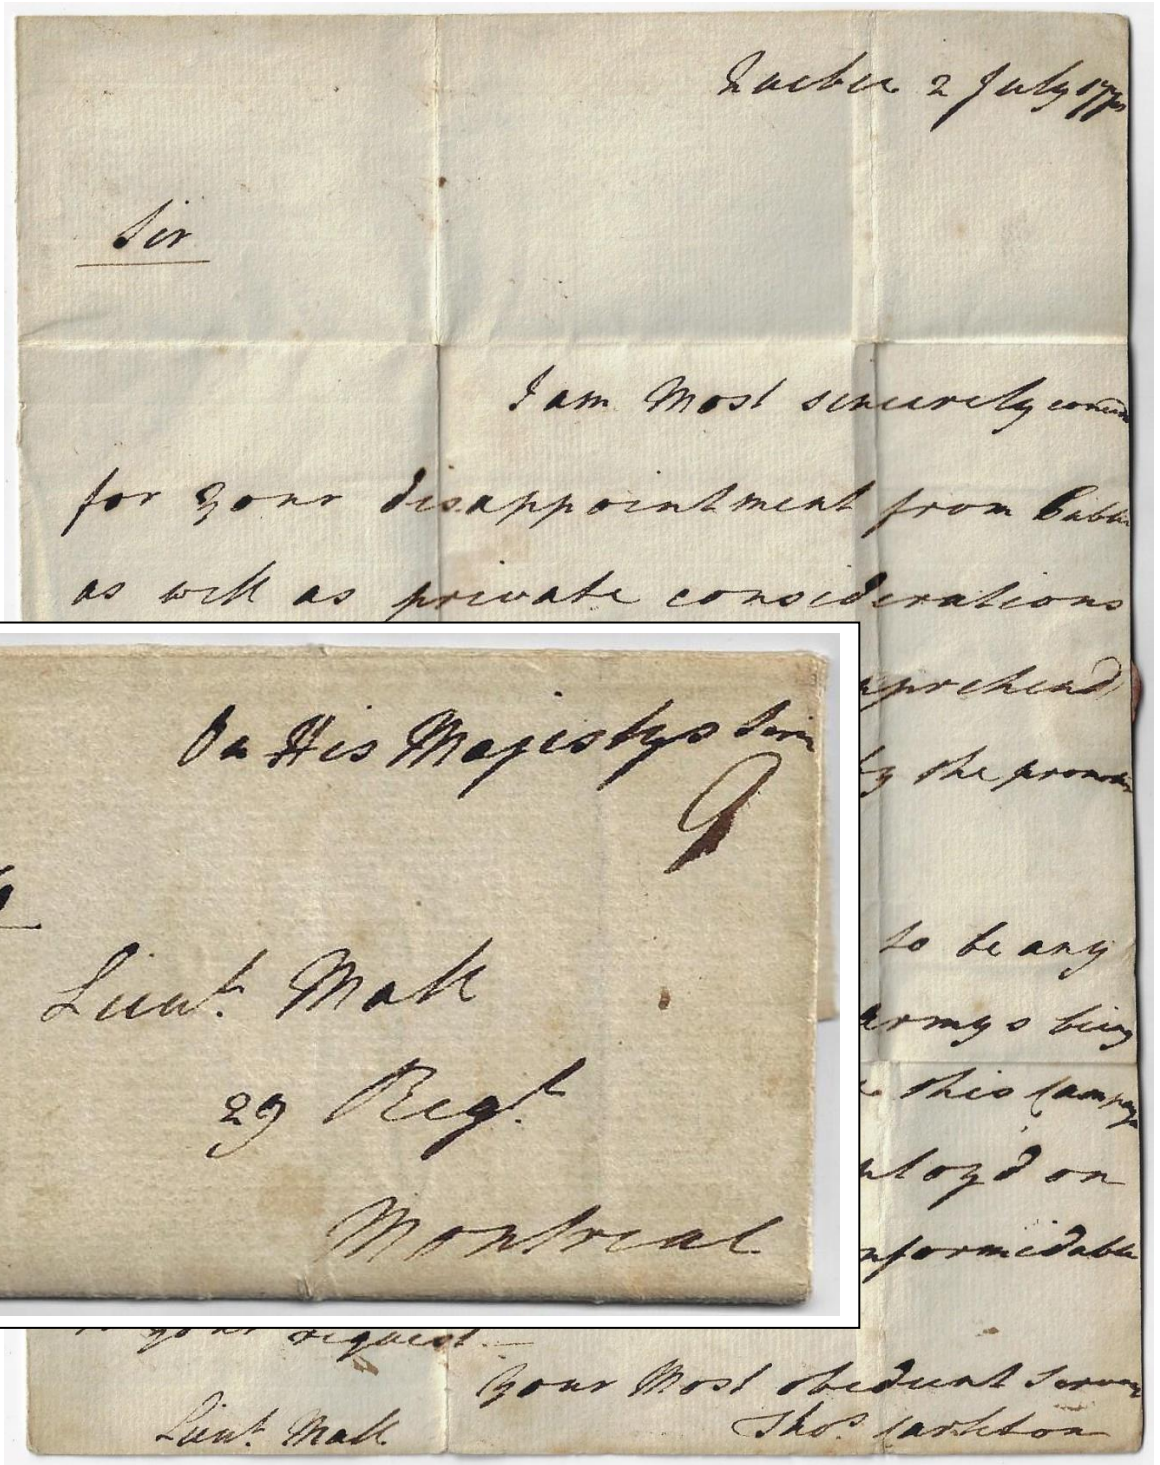 Quebec 2 July 177
Sir
I am Most sincerely
for your disappointment from Public
as well as private considerations
apprehend
by the
to be any
armys being
this Campaign
ployd on
nformidable
to your request.—
Your Most obedient Servant
Thos. Carleton
Lieut. Matt
On His Majestys Servic
9
Lieut. Matt
29 Regt.
Montreal